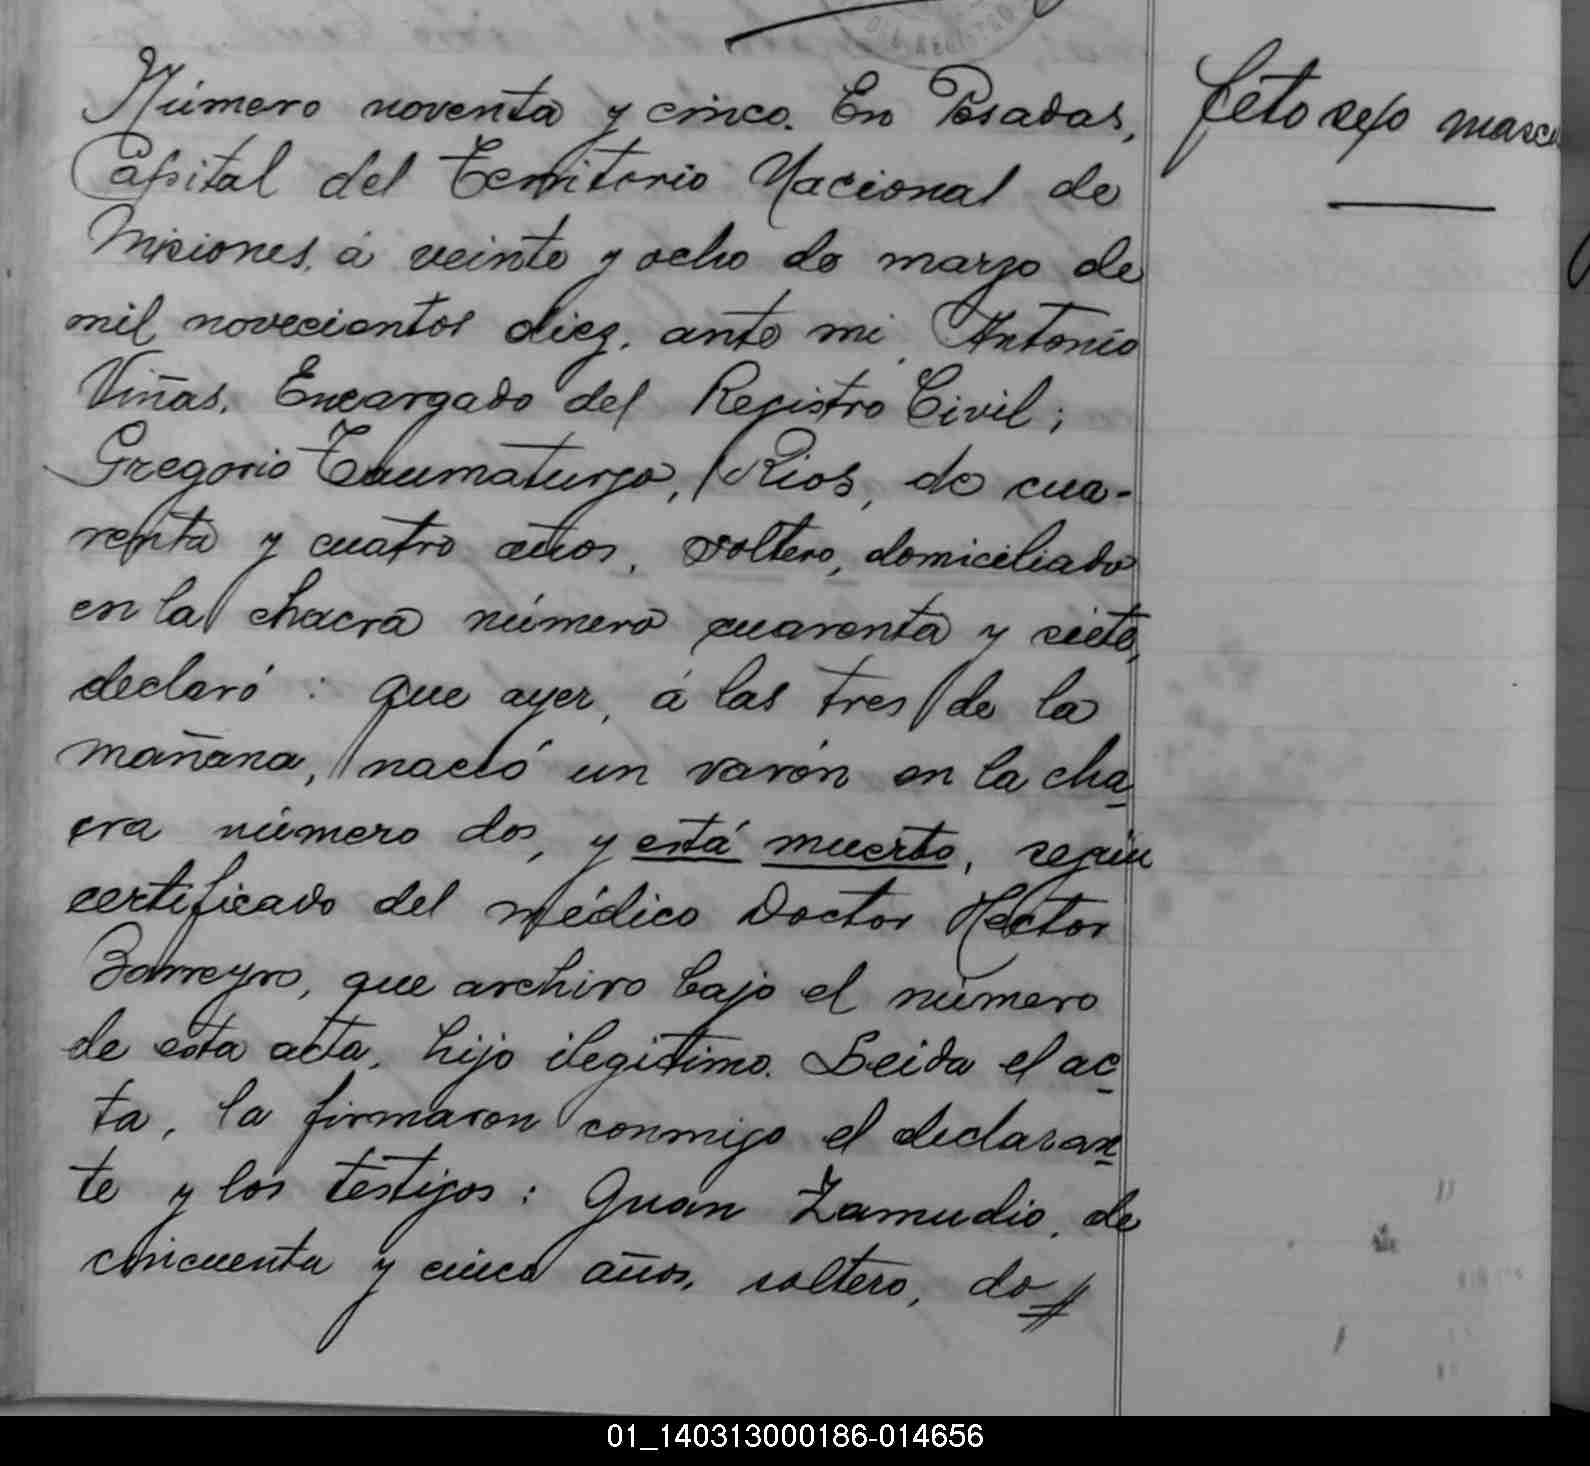 Número noventa y cinco. En Posadas,
Capital del Territorio Nacional de
Misiones, á veinte y ocho de marzo de
mil novecientos diez, ante mi, Antonio
Viñas, Encargado del Registro Civil;
Gregorio Taumaturgo, Rios, de cua-
renta y cuatro años, soltero, domiciliado
en la chacra número cuarenta y siete,
declaró: que ayer, á las tres de la
mañana, nació un varón en la cha
cra número dos, y está muerto, según
certificado del médico Doctor Hector
Barreyro, que archivo bajo el número
de esta acta, hijo ilegitimo. Leida el ac
ta, la firmaron conmigo el declaran
te y los testigos: Juan Zamudio, de
cincuenta y cinco años, soltero, do//
feto sexo mascu
01_140313000186-014656